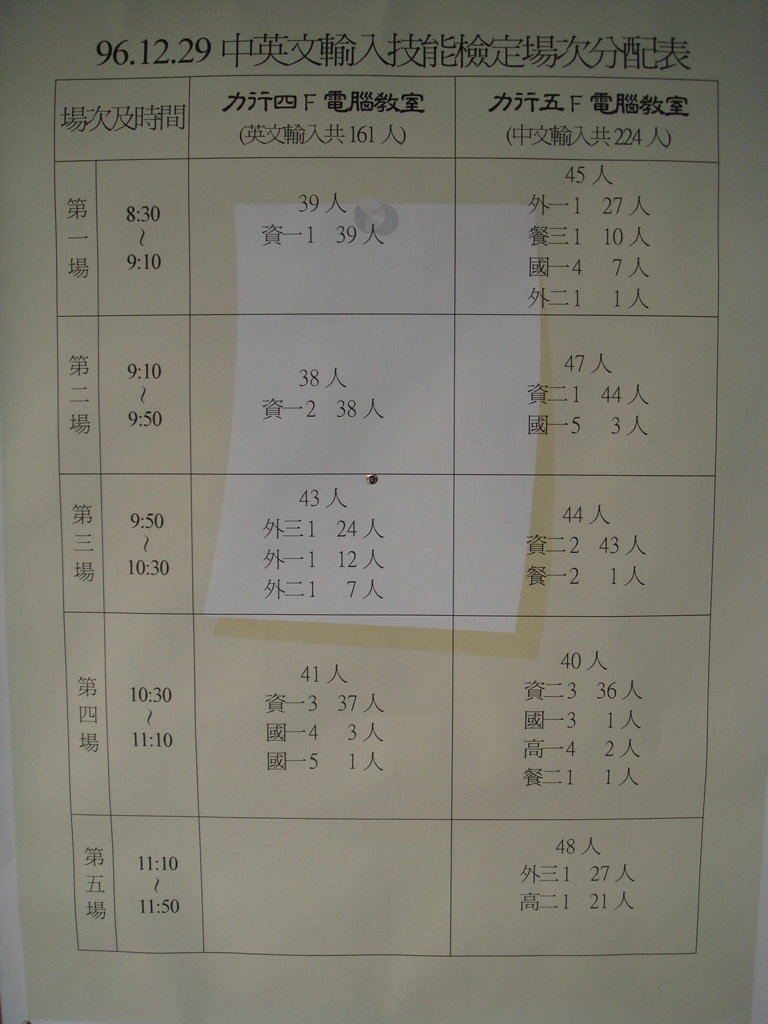 96.12.29 中英文輸入技能檢定場次分配表
場次及時間
力行四F 電腦教室
(英文輸入共 161 人)
力行五F 電腦教室
(中文輸入共 224 人)
第一場
8:30
~
9:10
39 人
資一1 39 人
45 人
外一1 27 人
餐三1 10 人
國一4 7 人
外二1 1 人
第二場
9:10
~
9:50
38 人
資一2 38 人
47 人
資二1 44 人
國一5 3 人
第三場
9:50
~
10:30
43 人
外三1 24 人
外一1 12 人
外二1 7 人
44 人
資二2 43 人
餐一2 1 人
第四場
10:30
~
11:10
41 人
資一3 37 人
國一4 3 人
國一5 1 人
40 人
資二3 36 人
國一3 1 人
高一4 2 人
餐二1 1 人
第五場
11:10
~
11:50
48 人
外三1 27 人
高二1 21 人